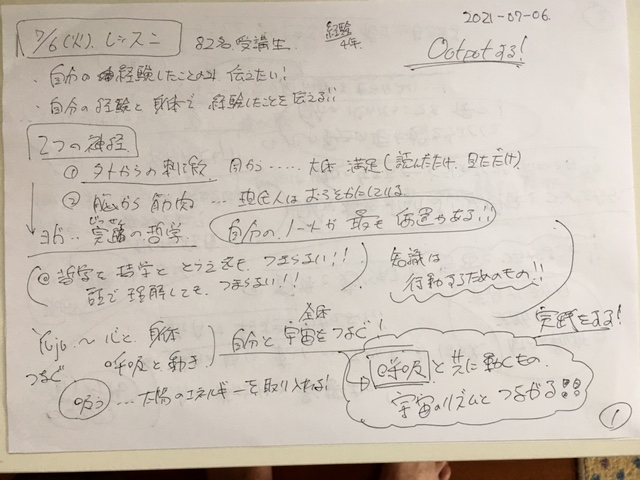 2021-07-06.
7/6(火). レッスン
82名受講生.
経験
4年.
Outputする!
・自分の経験したことのみ 伝えたい!
・自分の経験と身体で 経験したことを伝える!!
2つの神経
① 外からの刺激 目から ..... 大体 満足(読んだだけ. 見ただけ).
② 脳から 筋肉 ... 現代人はおろそかにしている
じっせん
ヨガ.. 実践の哲学.
自分の ノートが 最も 価値がある!!
◎哲学を 哲学と とらえても. つまらない!!
頭で理解しても. つまらない!!
知識は
行動するためのもの!!
実践をする!
Yuju ~ 心と 身体
つなぐ 呼吸と動き
全体
自分と 宇宙をつなぐ!
吸う ... 太陽のエネルギーを取り入れる!
呼吸 と共に動くもの.
宇宙のリズムと つながる!!
①